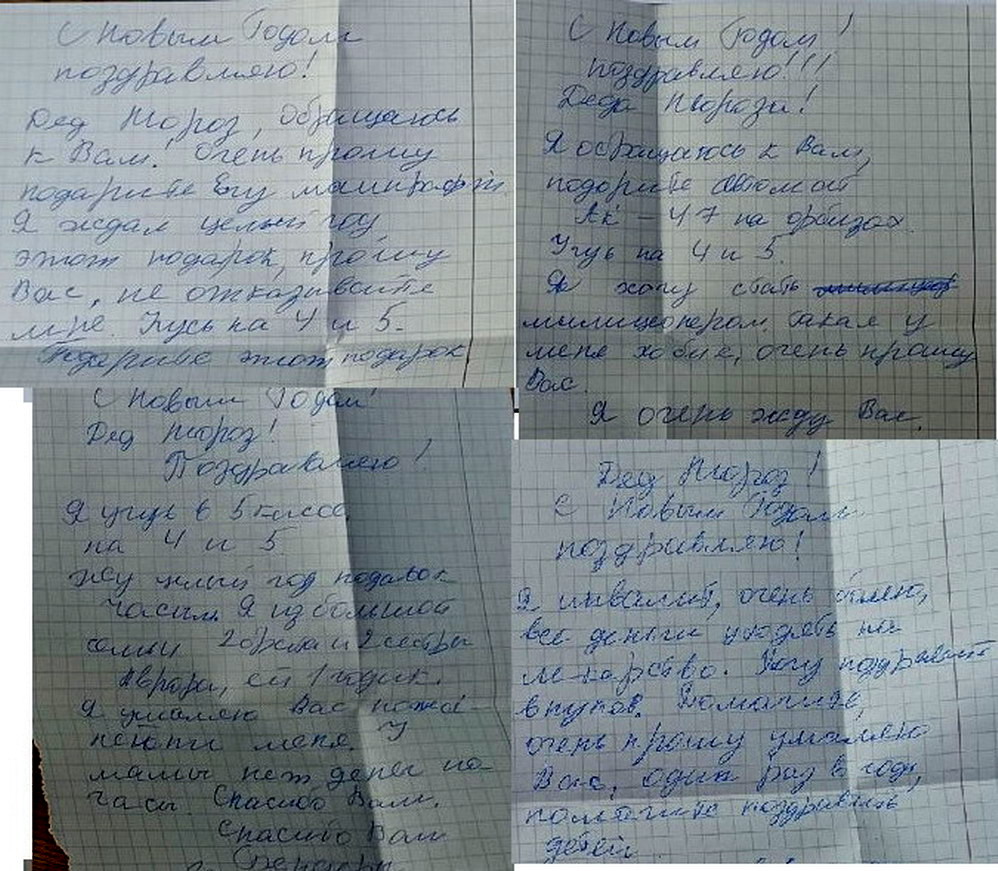 С Новым Годом
поздравляю!
Дед Мороз, обращаюсь
к Вам! Очень прошу
подарите Егу маинграфт
Я ждал целый год
этот подарок, прошу
Вас, не отказывайте
мне. Учусь на 4 и 5.
Подарите этот подарок
С Новым Годом!
поздравляю!!!
Деда Мороза!
Я обращаюсь к Вам,
подорите автомат
АК-47 на орбизах.
Учусь на 4 и 5.
Я хочу стать
милиционером, такая у
меня хобие, очень прошу
Вас.
Я очень жду Вас.
С Новым Годом!
Дед Мороз!
Поздравляю!
Я учусь в 5 классе
на 4 и 5
жду целый год подарок
часы. Я из большой
семьи 2 брата и 2 сестры
Аврора, ей 1 годик.
Я умоляю Вас
меня. У
мамы нет денег на
часы. Спасибо Вам.
Спасибо Вам
Дед Мороз!
С Новым Годом
поздравляю!
Я инвалит, очень болею,
все деньги уходять на
лекарство. Хочу поздравить
внуков. Помагите,
очень прошу умаляю
Вас, один раз в году,
помагите поздравить
детей